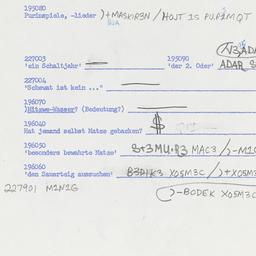 195080
Purimspiele, -lieder )+MASKIR3N / HOJT IS PURIMQT
227003 195090
'ein Schaltjahr' — 'der 2. Oder' ADAR S
227004
'Schewat ist kein ..." —
196070
)Hitzwe-Wasser? (Bedeutung?) —
196040
Hat jemand selbst Matze gebacken? $
196050
'besonders bewährte Matze' MAC3 / )-M1
196060
'den Sauerteig aussuchen' B3DIK3 XOSM3C / )+XOSM3
227901 MIN1G )-BODEK XOSM3C